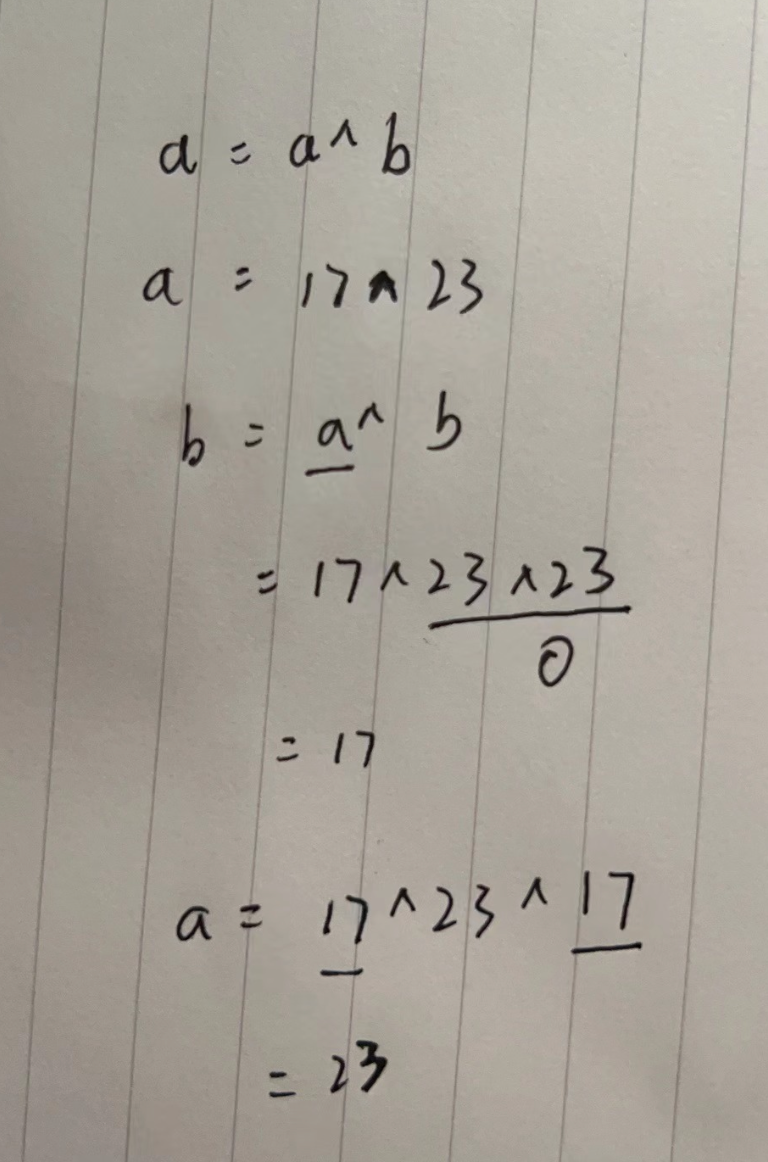 a = a ^ b
a = 17 ^ 23
b = a ^ b
= 17 ^ 23 ^ 23
0
= 17
a = 17 ^ 23 ^ 17
= 23